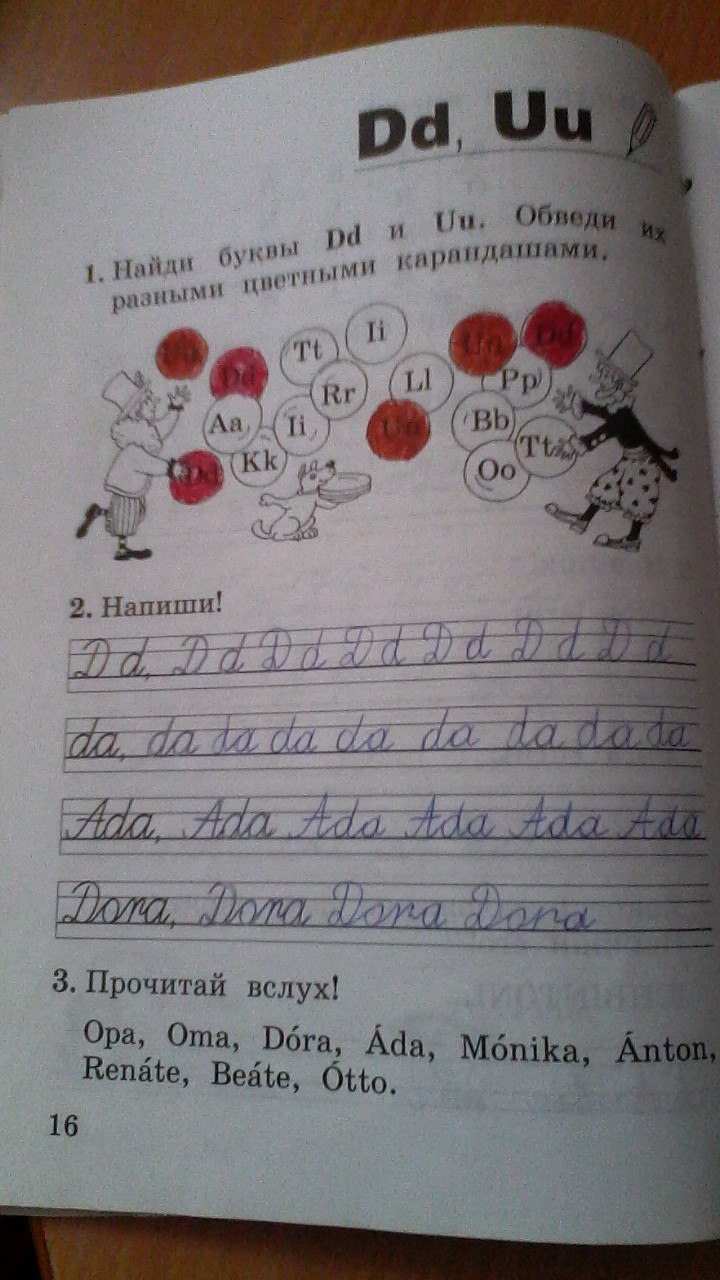 Dd, Uu
1. Найди буквы Dd и Uu. Обведи их
разными цветными карандашами.
Uu Dd Tt Ii Uu Dd
Aa Ii Rr Ll Uu Bb Pp
Dd Kk Oo Tt
2. Напиши!
Dd, Dd Dd Dd Dd Dd Dd
da, da da da da da da da da
Ada, Ada Ada Ada Ada Ada
Dora, Dora Dora Dora
3. Прочитай вслух!
Opa, Oma, Dóra, Áda, Mónika, Ánton,
Renáte, Beáte, Ótto.
16